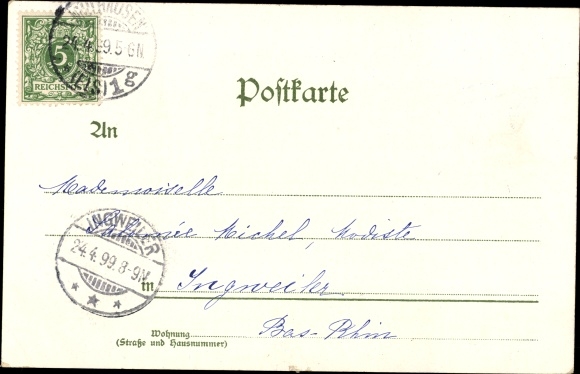 MÜLHAUSEN
24.4.99.5-6N
(ELS) 1g
5
REICHSPOST
Postkarte
An
Mademoiselle
Michel, Modiste
INGWEILER
24.4.99.8-9N.
in Ingweiler
Bas-Rhin
Wohnung
(Straße und Hausnummer)